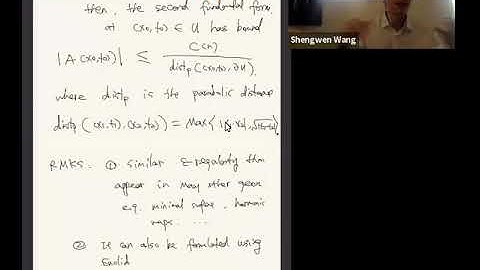 then, the second fundamental form
at (x0,t0) ∈ U has bound
|A(x0,t0)| ≤ C(n) / distp((x0,t0),∂U),
where distp is the parabolic distance
distp((x1,t1),(x2,t2)) = Max{
RMKS. ① similar ε-regularity thm
appear in many other geom
e.g. minimal surface, harmonic
maps. ...
② It can also be formulated using
Euclid
Shengwen Wang